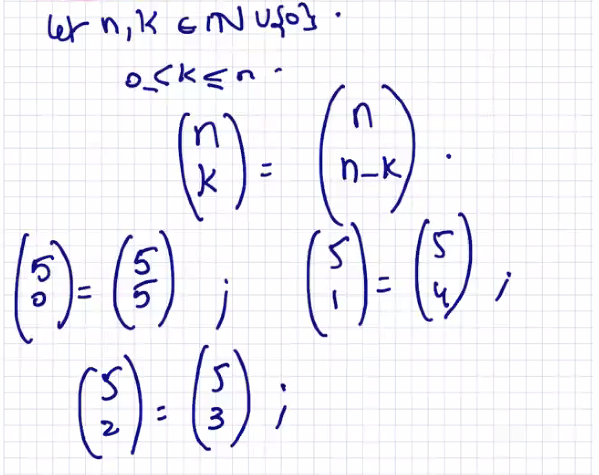 let n, k ∈ ℕ ∪ {0}.
0 ≤ k ≤ n.
(n k) = (n n-k).
(5 0) = (5 5) ; (5 1) = (5 4) ;
(5 2) = (5 3) ;